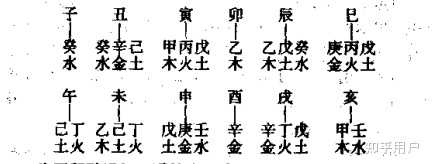 子 丑 寅 卯 辰 巳
癸 癸辛己 甲丙戊 乙 乙戊癸 庚丙戊
水 水金土 木火土 木 木土水 金火土
午 未 申 酉 戌 亥
己丁 乙己丁 戊庚壬 辛 辛丁戊 甲壬
土火 木土火 土金水 金 金火土 木水
知乎用户